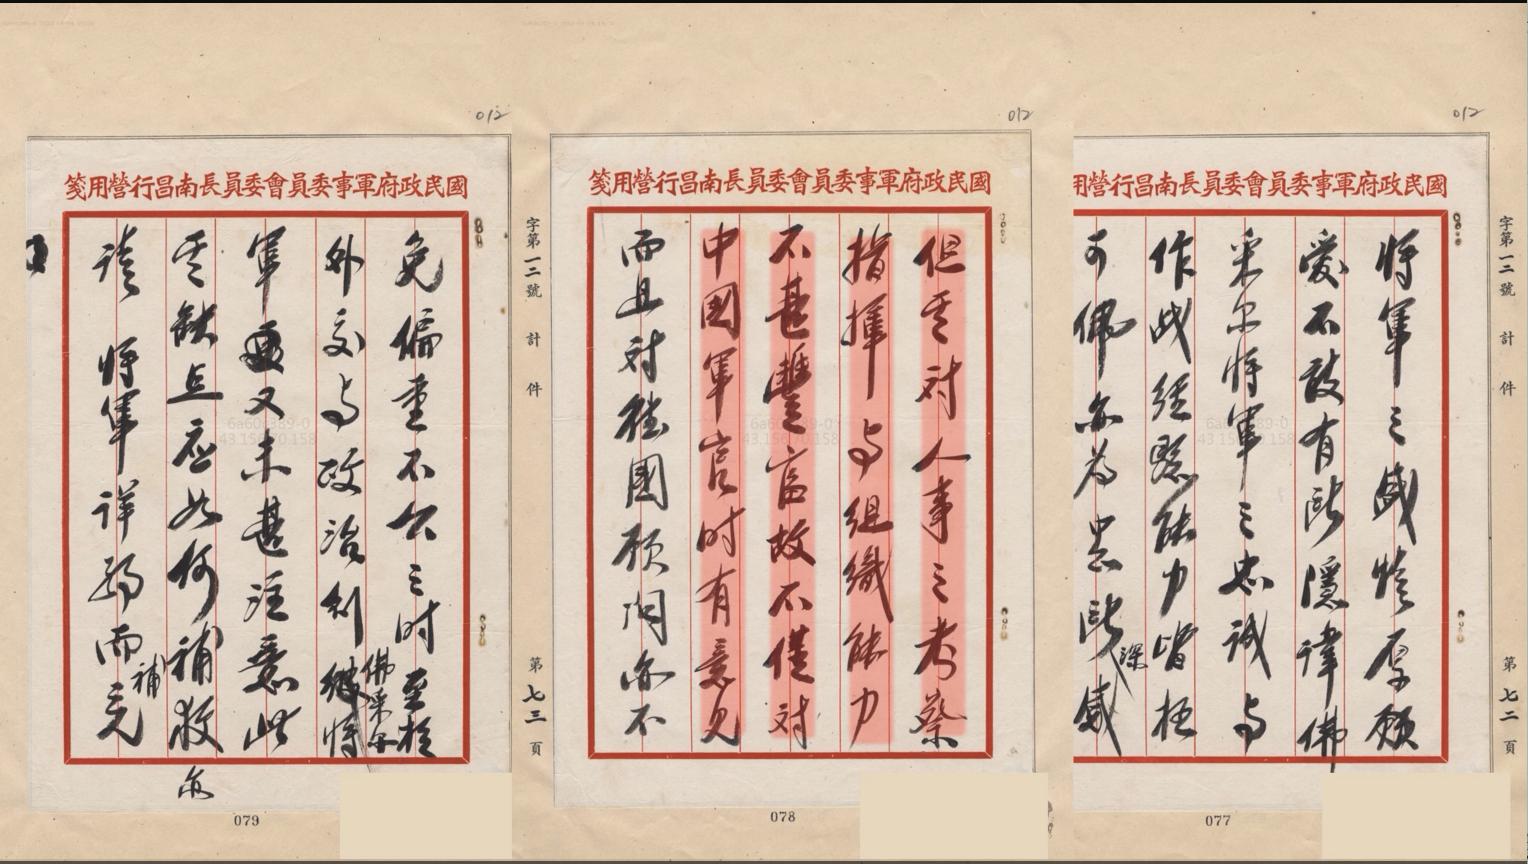 012
國民政府軍事委員會委員長南昌行營用箋
字第一二號 計 件
第七二頁
將軍之盛情厚
愛不敢有所隱諱佛
采尔將軍之忠誠与
作战經驗能力皆極
可佩亦為 深感
077
012
國民政府軍事委員會委員長南昌行營用箋
字第一二號 計 件
第七三頁
但其对人事之考察
指揮与組織能力
不甚豐富故不僅对
中國軍官时有意見
而且对德國顾问亦不
078
012
國民政府軍事委員會委員長南昌行營用箋
免偏重不公之时至於
外交与政治則佛采尔將
軍又未甚注意此
其缺点应如何補救亦
請將軍詳為而補充
079